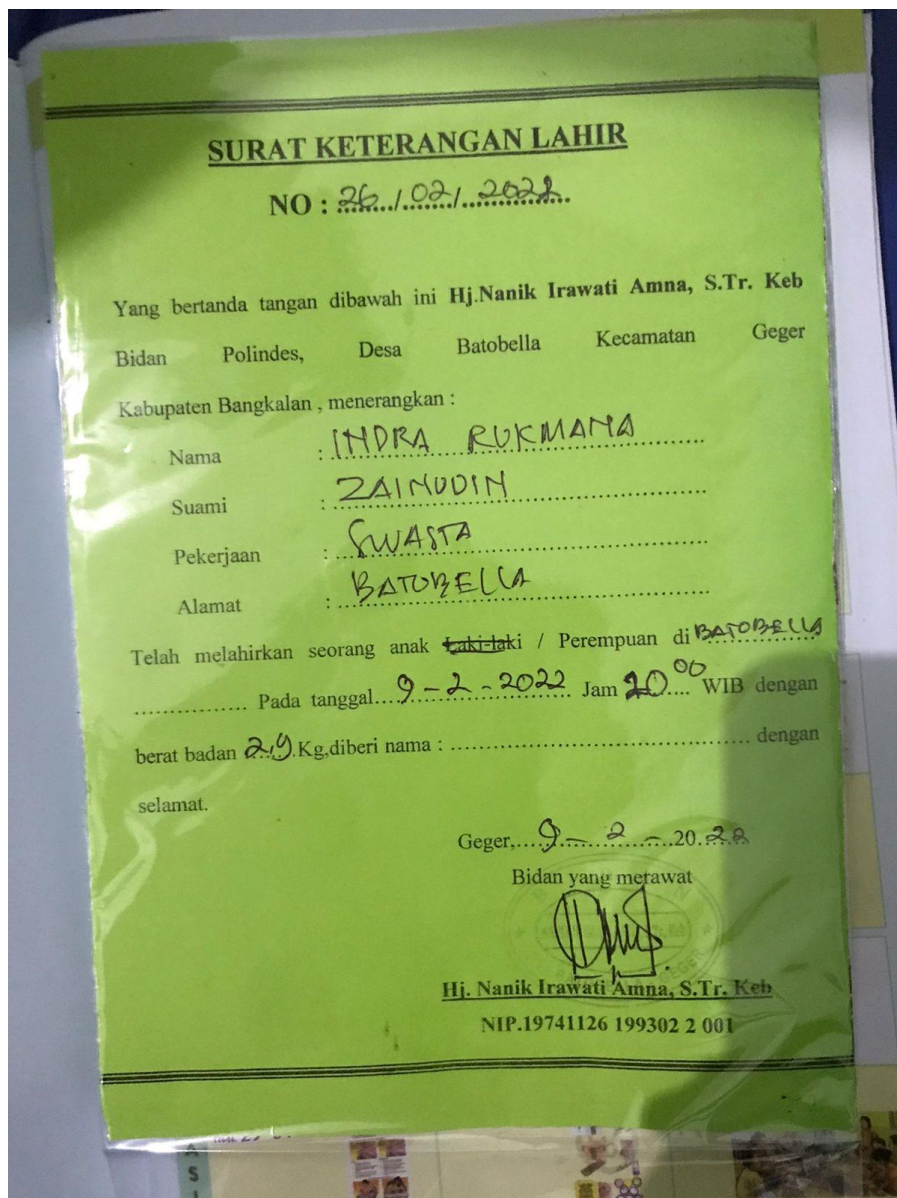 SURAT KETERANGAN LAHIR
NO : 26.../.02./..2022..
Yang bertanda tangan dibawah ini Hj.Nanik Irawati Amna, S.Tr. Keb
Bidan Polindes, Desa Batobella Kecamatan Geger
Kabupaten Bangkalan , menerangkan :
Nama : INDRA RUKMANA
Suami : ZAINUDIN
Pekerjaan : SWASTA
Alamat : BATOBELLA
Telah melahirkan seorang anak Laki-laki / Perempuan di BATOBELLA
................ Pada tanggal...9-2-2022 Jam 20.00 WIB dengan
berat badan 2,9 Kg,diberi nama : ............................................ dengan
selamat.
Geger,....9-2-.....20.22
Bidan yang merawat
Hj. Nanik Irawati Amna, S.Tr. Keb
NIP.19741126 199302 2 001